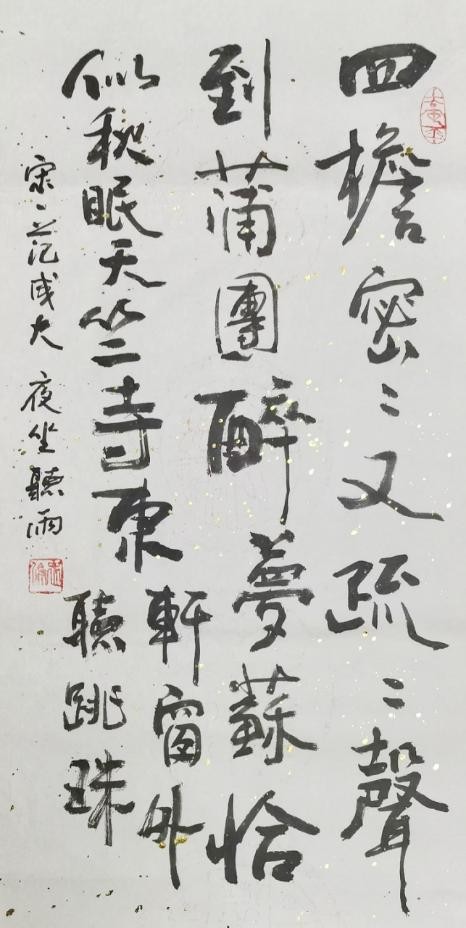 四檐密〻又疏〻聲
到蒲團醉夢蘇恰
似秋眠天竺寺東
軒窗外
聽跳珠
宋、范成大 夜坐聽雨